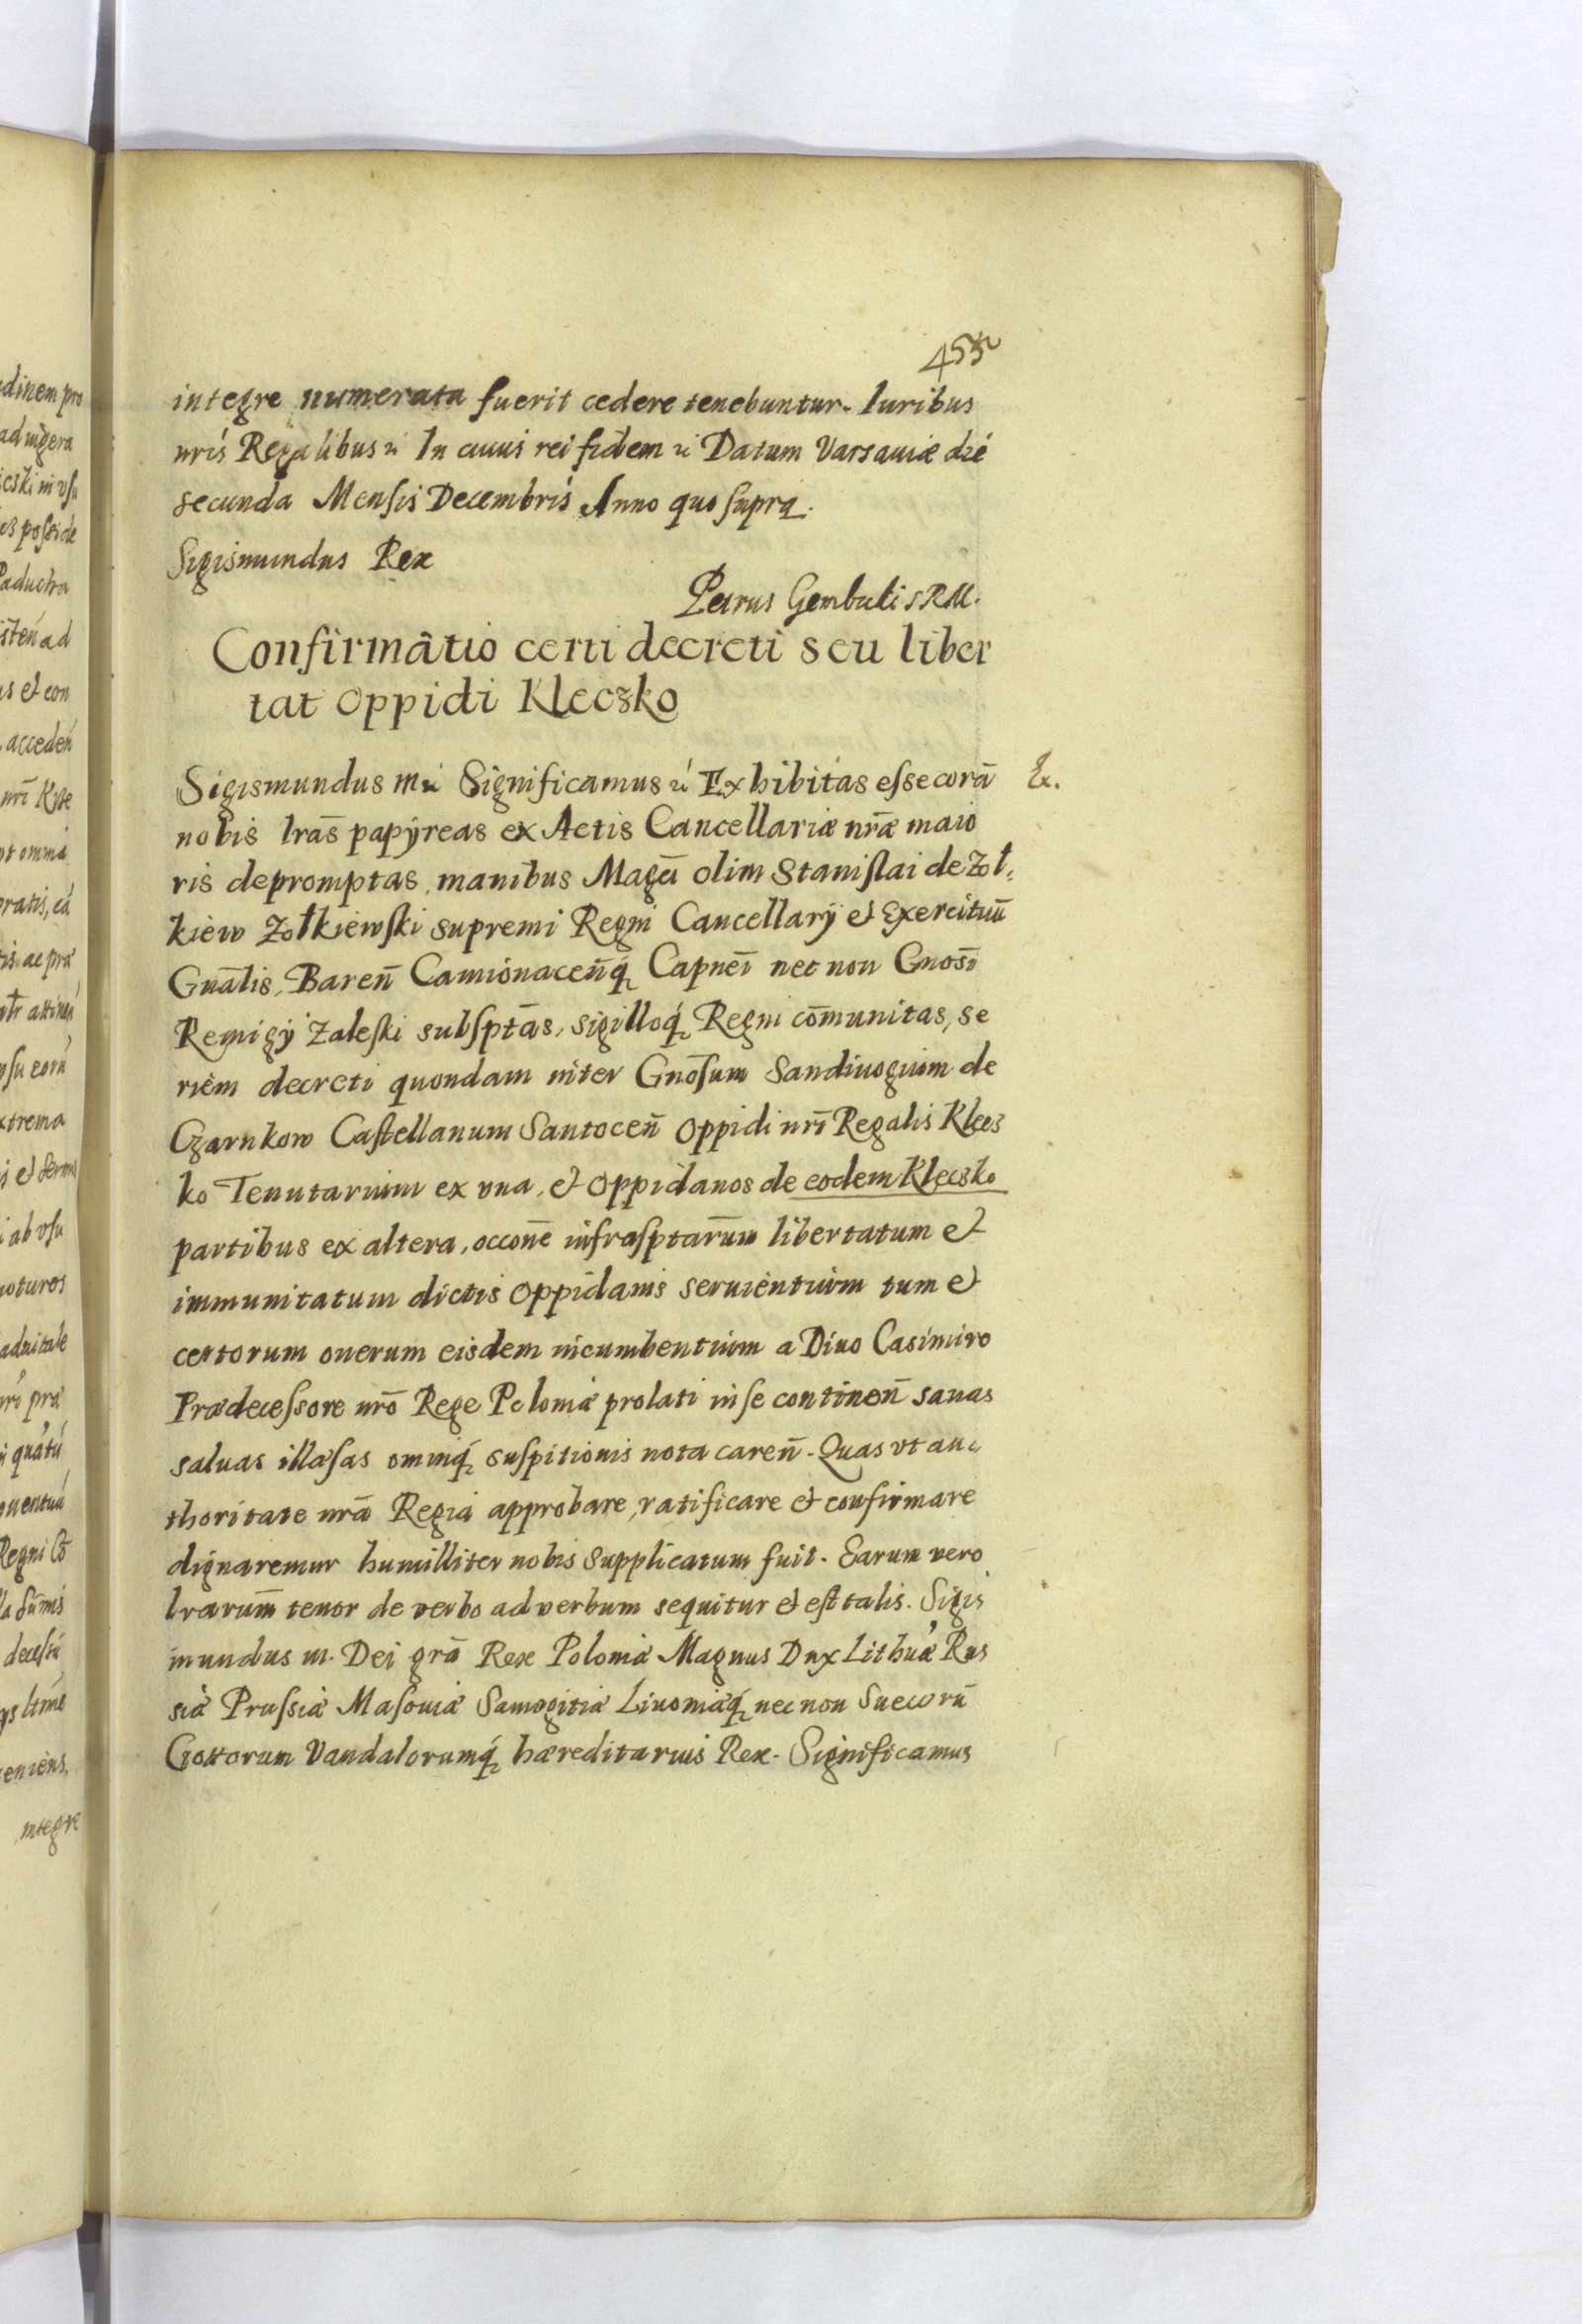 455
integre numerata fuerit cedere tenebuntur. Iuribus
nris Regalibus &c In cuius rei fidem &c Datum Varsauiæ die
secunda Mensis Decembris Anno quo supra.
Sigismundus Rex
Petrus Gembicki SRM.
Confirmâtio certi decreti seu liber
tat Oppidi Kleczko
Sigismundus III &c Significamus &c Exhibitas esse corā
nobis lrās papÿreas ex Actis Cancellariæ nrǣ maio
ris depromptas, manibus Magci olim Stanislai de Zoł,
kiew Zołkiewski supremi Regni Cancellarÿ et Exercituū
Gnālis, Bareñ Camionaceñq́ Capnei nec non Gnosi
Remigÿ Zaleski subsptās, sigilloq́ Regni cōmunitas, se
riem decreti quondam inter Gnōsum Sandiuogium de
Czarnkow Castellanum Santoceñ Oppidi nrī Regalis Klecs
ko Tenutarium ex vna, et Oppidanos de eodem Klecsko
partibus ex altera, occone infrasptarūm libertatum et
immunitatum dictis Oppidanis seruientium tum et
certorum onerum eisdem incumbentium a Diuo Casimiro
Prædecessore nrō Rege Poloniæ prolati in se contineñ sanas
saluas illæsas omniq́ suspitionis nota careñ. Quas vt au
thoritate nrā Regia approbare, ratificare et confirmare
dignaremur humilliter nobis supplicatum fuit. Earum vero
lrarūm tenor de verbo ad verbum sequitur et est talis. Sigis
mundus III. Dei grā Rex Poloniæ Magnus Dux Lithuæ Rus
siæ Prussiæ Masouiæ Samogitiæ Liuoniæq́ nec non Suecorū
Gottorum Vandalorumq́ hæreditarius Rex. Significamus